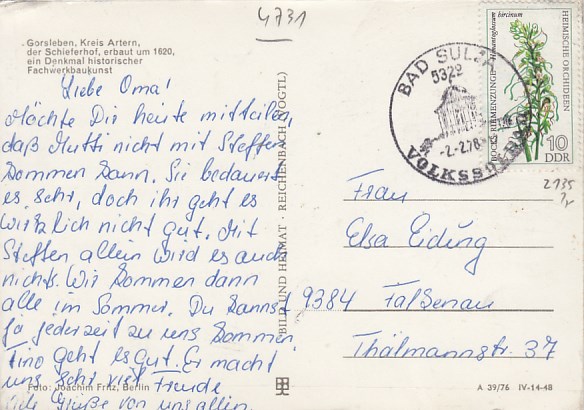 4731
Gorsleben, Kreis Artern,
der Schieferhof, erbaut um 1620,
ein Denkmal historischer
Fachwerkbaukunst
Liebe Oma!
Möchte Dir heute mitteilen,
daß Mutti nicht mit Steffen
kommen kann. Sie bedauert
es sehr, doch ihr geht es
wirklich nicht gut. Mit
Steffen allein wird es auch
nichts. Wir kommen dann
alle im Sommer. Du kannst
ja jederzeit zu uns kommen.
Tino geht es gut. Er macht
uns sehr viel Freude
Foto: Joachim Fritz, Berlin
Grüße von uns allen
BILD UND HEIMAT · REICHENBACH (VOGTL)
BAD SULZA
5322
-2.-2.78
VOLKSSOLBAD
BOCKS-RIEMENZUNGE · Himantoglossum hircinum
HEIMISCHE ORCHIDEEN
10
DDR
2135
Frau
Elsa Eiding
9384 Falkenau
Thälmannstr. 37
A 39/76 IV-14-48